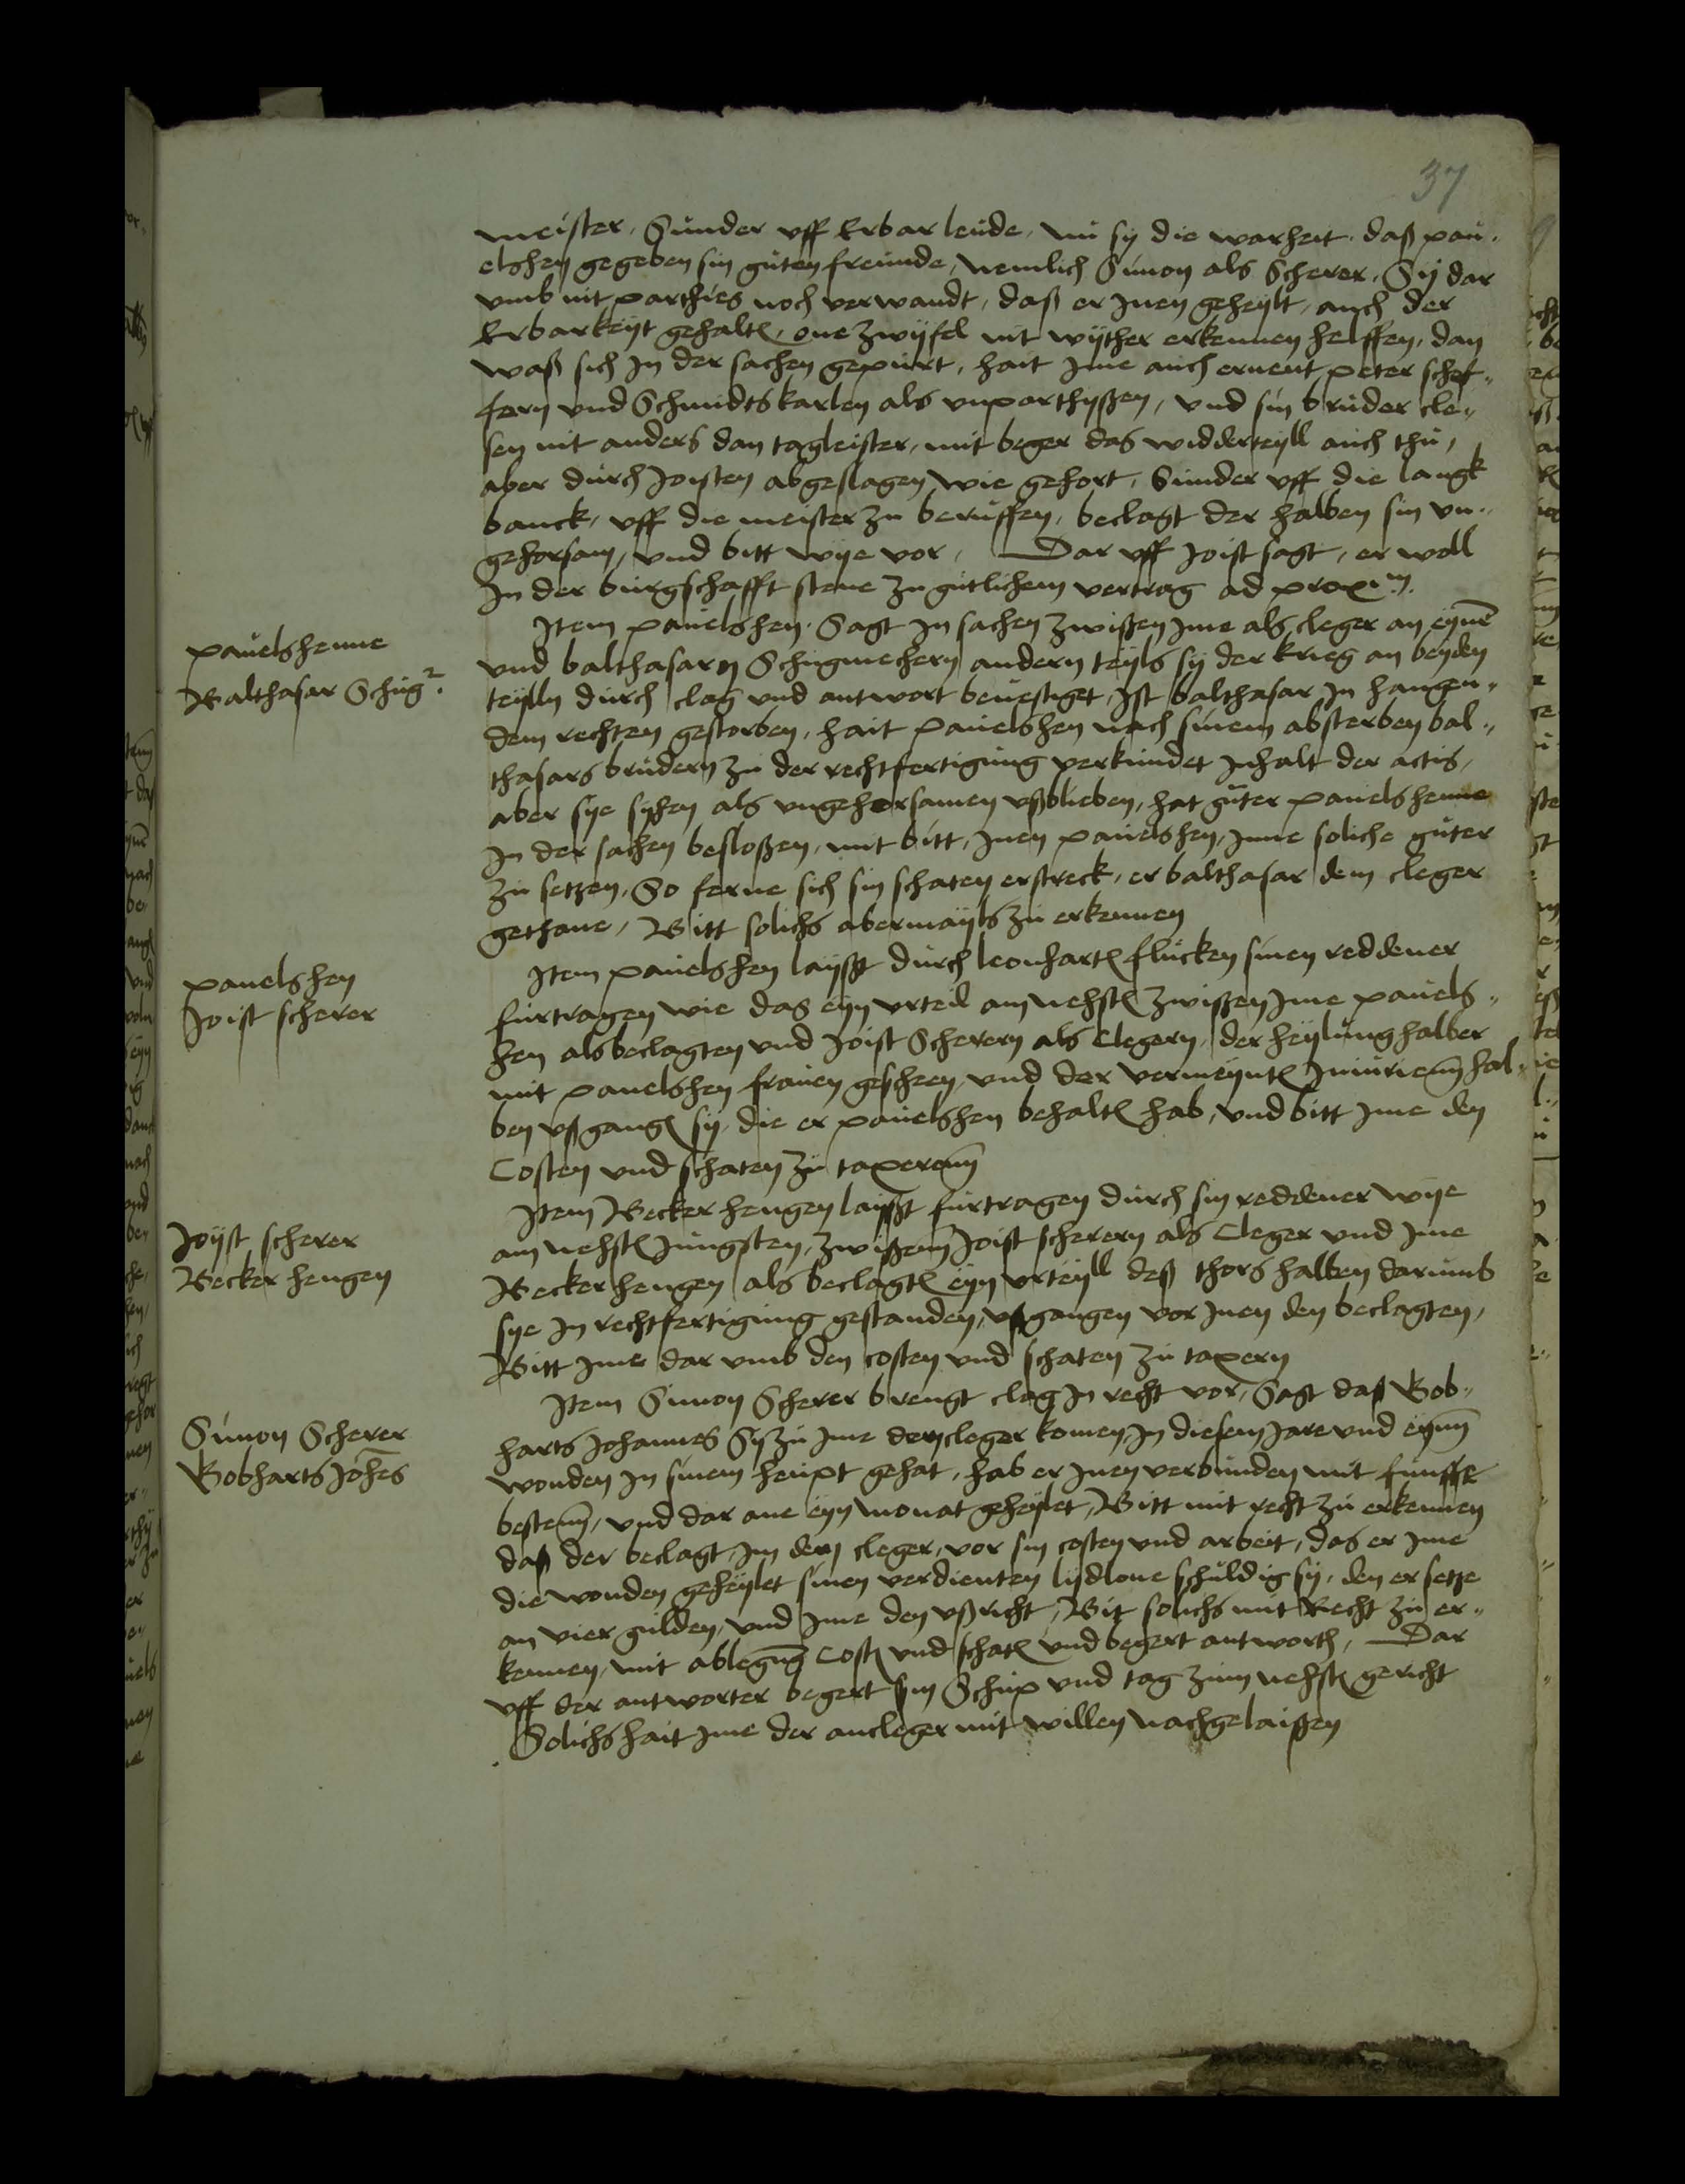 37
meister, Sunder uff Erbar leude, nu sy die warheit, daß pau-
elshen gegeben sin guten freunde, nemlich Simon als Scherer, Sy dar
umb nit parthies noch verwandt, daß er Inen geheylt, auch der
Erbarkeyt gehalten, one zwyfel nit wyther erkennen helffen, dan
waß sich In der sachen gepurt, hait Ime auch ernent peter schef-
fern und Schmidtskarlen als unparthyßen, und sin bruder cle-
sen nit anders dan tagleister, mit beger das widderteyll auch thu,
aber durch Joisten abgeslagen, wie gehort, Sunder uff die langk
banck, uff die meister zu beruffen, beclagt der halben sin un-
gehorsam, und bitt wye vor, Dar uff Joist sagt, er woll
In der burgschafft stene zu gutlichem vertrag ad proxm.
pauelshenne
Balthasar Schugr.
Item pauelshen, Sagt In sachen zwißen Ime als cleger an eynem
und balthasarn Schugmechern andern teyls sy der krieg an beyden
teylln durch clag und antwort bevestiget, Ist balthasar In hangen-
dem rechten gestorben, hait pauelshen nach sinem absterben bal-
thasars brudern zu der rechtfertigung verkundet Inhalt der actis,
aber sye syhen als ungehorsamen ußblieben, hat guter pauelshenne
In der sachen besloßen, mit bitt, Inen pauelshen, Inne soliche guter
zu setzen, So ferne sich sin schaten erstreck, er balthasar dem cleger
gethane, Bitt solichs abermayls zu erkennen
pauelshen
Joist scherer
Item pauelshen laysßt durch leonharten flucken sinen reddener
furtragen wie das eyn urteil am nehsten zwißen Ime pauels-
hen als beclagten und Joist Scherern als Clegern, der heylung halber
mit pauelshen frauen gescheen, und der vermeynten Iniurienn hal-
ben ußgangen sy, die er pauelshen behalten hab, und bitt Ime den
Costen und schaten zu taxerenn
Joyst scherer
Becker hengen
Item Becker hengen laysßt furtragen durch sin reddener wye
am nehsten Jungsten, zwißenn Joist scherern als Cleger und Ime
Becker hengen als beclagten eyn urteyll deß thors halben darumb
sye In rechtfertigung gestanden, ußgangen vor Inen den beclagten,
Bitt Ime dar umb den costen und schaten zu taxern
Simon Scherer
Bobharts Johes
Item Simon Scherer brengt clag In recht vor, Sagt daß Bob-
harts Johannes Sy zu Ime dem cleger komen, In diesem Jare und eynn
wonden In sinem heupt gehat, hab er Inen verbunden mit funffe
bestenn, und dar ane eyn monat geheylet, Bitt mit recht zu erkennen
daß der beclagt, Im dem cleger, vor sin costen und arbeit, das er Ime
die wonden geheylet sinen verdienten lydlone schuldig sy, den er setze
an vier gulden, und Ime den ußricht, Bit solichs mit Recht zu er-
kennen, mit ablegung Costen und schaten und begert antworth, Dar
uff der antworter begert sin Schup und tag zum nehsten gericht
Solichs hait Ime der ancleger mit willen nachgelaißen